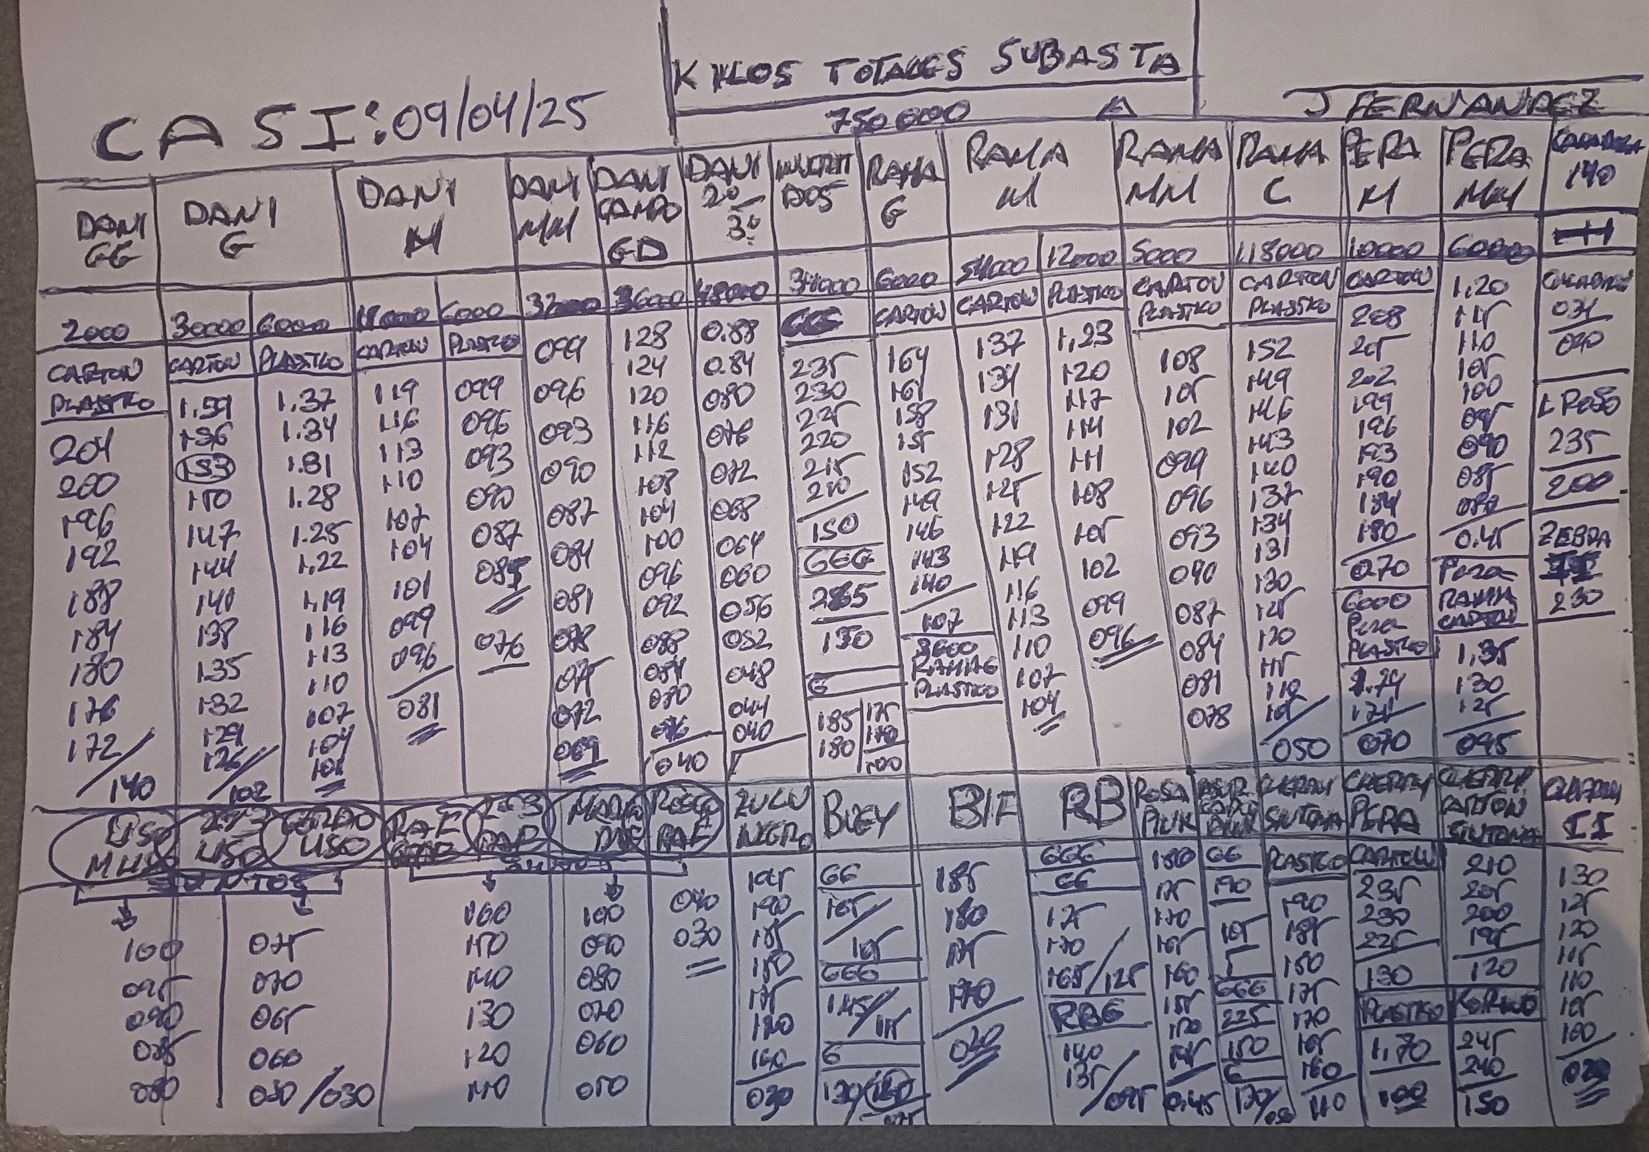 KILOS TOTALES SUBASTA
CASI: 09/04/25
750000
J FERNANDEZ
DANI GG
DANI G
DANI M
DANI MM
DANI CAMPO GD
DANI 2º 3º
RAMA G
RAMA M
RAMA MM
RAMA C
PERA M
PERA MM
140
2000
30000
6000
6000
32000
36000
48000
34000
6000
54000
12000
5000
118000
10000
60000
CARTON
PLASTICO
204
200
196
192
188
184
180
176
172/
140
CARTON
1.59
156
153
150
147
144
141
138
135
132
129
126/
102
PLASTICO
1.37
1.34
1.31
1.28
1.25
1.22
1.19
116
113
110
107
104
101
CARTON
119
116
113
110
107
104
101
099
096
081
PLASTICO
099
096
093
090
087
076
099
096
093
090
087
084
081
078
075
072
069
128
124
120
116
112
108
104
100
096
092
088
084
080
076
040
0.88
0.84
080
076
072
068
064
060
056
052
048
044
040
235
230
225
220
215
210
150
GGG
130
G
185
180
175
170
100
CARTON
164
161
158
155
152
149
146
143
140
107
RAMA G
PLASTICO
CARTON
137
134
131
128
125
122
119
116
113
110
107
104
PLASTICO
1,23
120
117
114
111
108
105
102
099
096
CARTON
PLASTICO
108
105
102
099
096
093
090
087
084
081
078
CARTON
PLASTICO
152
149
146
143
140
137
134
131
130
125
120
115
110
105
050
CARTON
208
205
202
199
196
193
190
184
180
070
6000
PERA
PLASTICO
1.74
171
070
1,20
115
110
105
100
095
090
085
080
0.45
PERA
RAMA
CARTON
1,35
130
125
095
090
235
200
ZEBRA
230
LISO
2º3º
LISO
LISO
2º3
ROSCO
PAE
ZULU NEGRO
BUEY
BIF
RB
ROSA PINK
CHERRY SINTONIA
CHERRY PERA
CHERRY CARTON SINTONIA
II
JUNTOS
100
095
090
085
080
075
070
065
060
050/030
160
150
140
130
120
110
100
090
080
070
060
050
040
030
195
190
185
180
175
170
160
030
GG
165/
105
GGG
145/
115
G
185
180
175
170
040
GGG
GG
175
170
165/125
RBG
140
135
/095
180
175
170
165
160
155
150
145
0.45
GG
190
105
GGG
225
150
G
PLASTICO
190
185
180
175
170
165
160
110
CARTON
235
230
225
130
PLASTICO
1,70
100
210
205
200
195
120
245
240
150
130
125
120
115
110
105
100